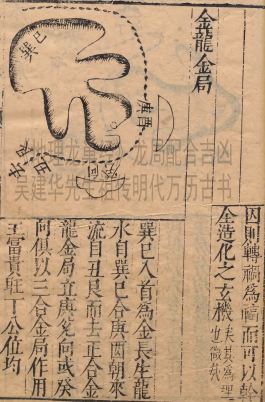 因則轉禍為福而可以斡
全造化之玄機
矣其為理
也微哉
金龍金局
巽巳
庚酉
丑艮
龙局配合吉凶
吴建华先生祖传明代万历古书
巽巳入首為金長生龍
水自巽巳合庚酉朝來
流自丑艮而去正合金
龍金局立庚兌向或癸
向俱以三合金局作用
主富貴旺丁公位均